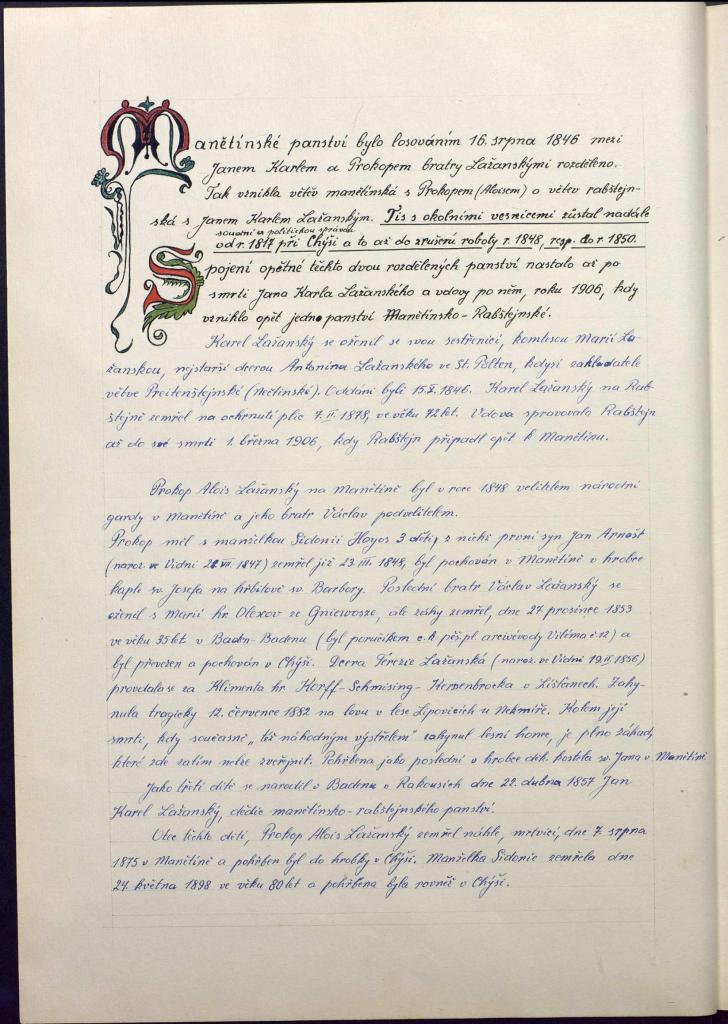 Manětínské panství bylo losováním 16. srpna 1846 mezi
Janem Karlem a Prokopem bratry Lažanskými rozděleno.
Tak vznikla větěv manětínská s Prokopem (Aloisem) a větev rabštejn-
ská s Janem Karlem Lažanským. Tis s okolními vesnicemi zůstal nadále
soudní a politickou správou
od r. 1817 při Chýši a to až do zrušení roboty r. 1848, resp. do r. 1850.
Spojení opětné těchto dvou rozdělených panství nastalo až po
smrti Jana Karla Lažanského a vdovy po něm, roku 1906, kdy
vzniklo opět jedno panství Manětínsko-Rabštejnské.
Karel Lažanský se oženil se svou sestřenicí, komtesou Marií La-
žanskou, nejstarší dcerou Antonína Lažanského ve St. Pölten, kdysi zakladatele
větve Preitenštejnské (Nečtinské). Oddáni byli 15.X. 1846. Karel Lažanský na Rab-
štejně zemřel na ochrnutí plic 7. II. 1878, ve věku 72 let. Vdova spravovala Rabštejn
až do své smrti 1. března 1906, kdy Rabštejn připadl opět k Manětínu.
Prokop Alois Lažanský na Manětíně byl v roce 1848 velitelem národní
gardy v Manětíně a jeho bratr Václav podvelitelem.
Prokop měl s manželkou Sidonií Hoyos 3 děti, z nichž první syn Jan Arnošt
(naroz. ve Vídni 22. VII. 1847) zemřel již 23. III. 1848, byl pochován v Manětíně v hrobce
kaple sv. Josefa na hřbitově sv. Barbory. Poslední bratr Václav Lažanský se
oženil s Marií hr. Olexov ze Gniewosze, ale záhy zemřel, dne 27. prosince 1853
ve věku 35 let v Baden-Badenu (byl poručíkem c. k. pěš. pl. arcivévody Viléma č. 12) a
byl převezen a pochován v Chýši. Dcera Terezie Lažanská (naroz. ve Vídni 19. II. 1856)
provdala se za Klimenta hr. Korff-Schmising-Kerssenbrocka v Lišťanech. Zahy-
nula tragicky 12. července 1882 na lovu v lese Lipovicích u Nekmíře. Kolem její
smrti, kdy současně „též náhodným výstřelem" zahynul lesní honec, je plno záhad,
které zde zatím nelze zveřejnit. Pohřbena jako poslední v hrobce děk. kostela sv. Jana v Manětíně.
Jako třetí dítě se narodil v Badenu v Rakousích dne 22. dubna 1857 Jan
Karel Lažanský, dědic manětínsko-rabštejnského panství.
Otec těchto dětí, Prokop Alois Lažanský zemřel náhle, mrtvicí, dne 7. srpna
1875 v Manětíně a pohřben byl do hrobky v Chýši. Manželka Sidonie zemřela dne
24. května 1898 ve věku 80 let a pohřbena byla rovněž v Chýši.